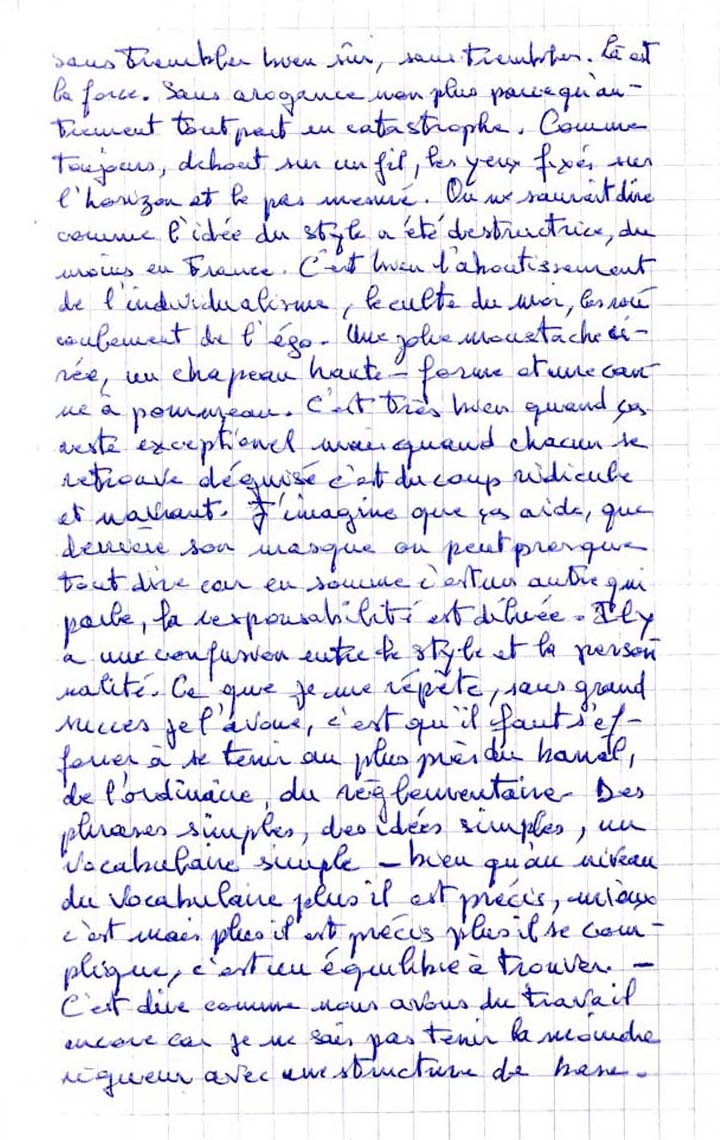 sans trembler bien sûr, sans trembler. Là est
la force. Sans arogance non plus parce qu'au-
trement tout part en catastrophe. Comme
toujours, debout sur un fil, les yeux fixés sur
l'horizon et le pas mesuré. On ne saurait dire
comme l'idée du style a été destructrice, du
moins en France. C'est bien l'aboutissement
de l'individualisme, le culte du moi, les rou
coulement de l'égo. Une jolie moustache ci-
rée, un chapeau haute-forme et une can
ne à pommeau. C'est très bien quand ça
reste exceptionel mais quand chacun se
retrouve déguisé c'est du coup ridicule
et navrant. J'imagine que ça aide, que
derrière son masque on peut presque
tout dire car en somme c'est un autre qui
parle, la responsabilité est diluée. Il y
a une confusion entre le style et la person
nalité. Ce que je me répète, sans grand
succès je l'avoue, c'est qu'il faut s'ef-
forcer à se tenir au plus près du banal,
de l'ordinaire, du réglementaire. Des
phrases simples, des idées simples, un
vocabulaire simple - bien qu'au niveau
du vocabulaire plus il est précis, mieux
c'est mais plus il est précis plus il se com-
plique, c'est un équilibre à trouver. -
C'est dire comme nous avons du travail
encore car je ne sais pas tenir la moindre
rigueur avec une structure de base.